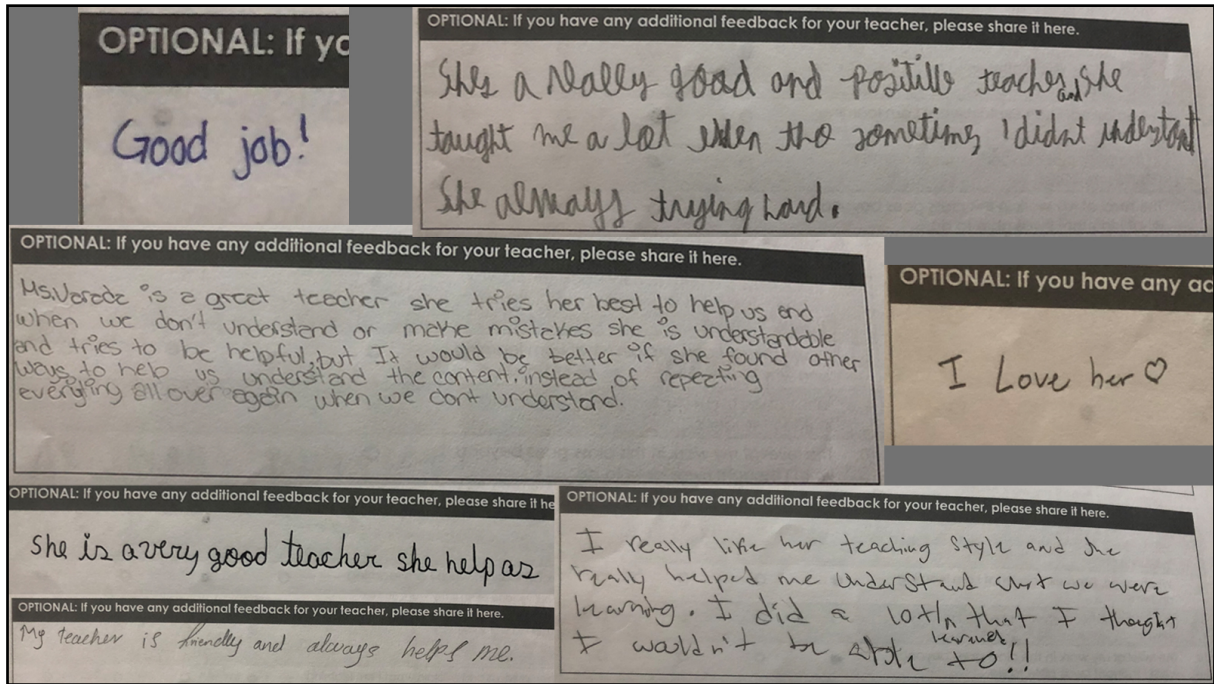 OPTIONAL: If yo
Good job!
OPTIONAL: If you have any additional feedback for your teacher, please share it here.
She's a really good and positive teacher, and she
taught me a lot even tho sometimes I didnt understant
She always trying hard.
OPTIONAL: If you have any additional feedback for your teacher, please share it here.
Ms.Varade is a great teacher she tries her best to help us and
when we don't understand or make mistakes she is understandable
and tries to be helpful, but It would be better if she found other
ways to help us understand the content. instead of repeating
everything all over again when we dont understand.
OPTIONAL: If you have any ad
I Love her ♡
OPTIONAL: If you have any additional feedback for your teacher, please share it he
She is a very good teacher she help as
OPTIONAL: If you have any additional feedback for your teacher, please share it here.
My teacher is friendly and always helps me.
OPTIONAL: If you have any additional feedback for your teacher, please share it here.
I really like her teaching style and she
really helped me understand what we were
learning. I did a lot In that I thought
I wouldn't be able to!!
learned